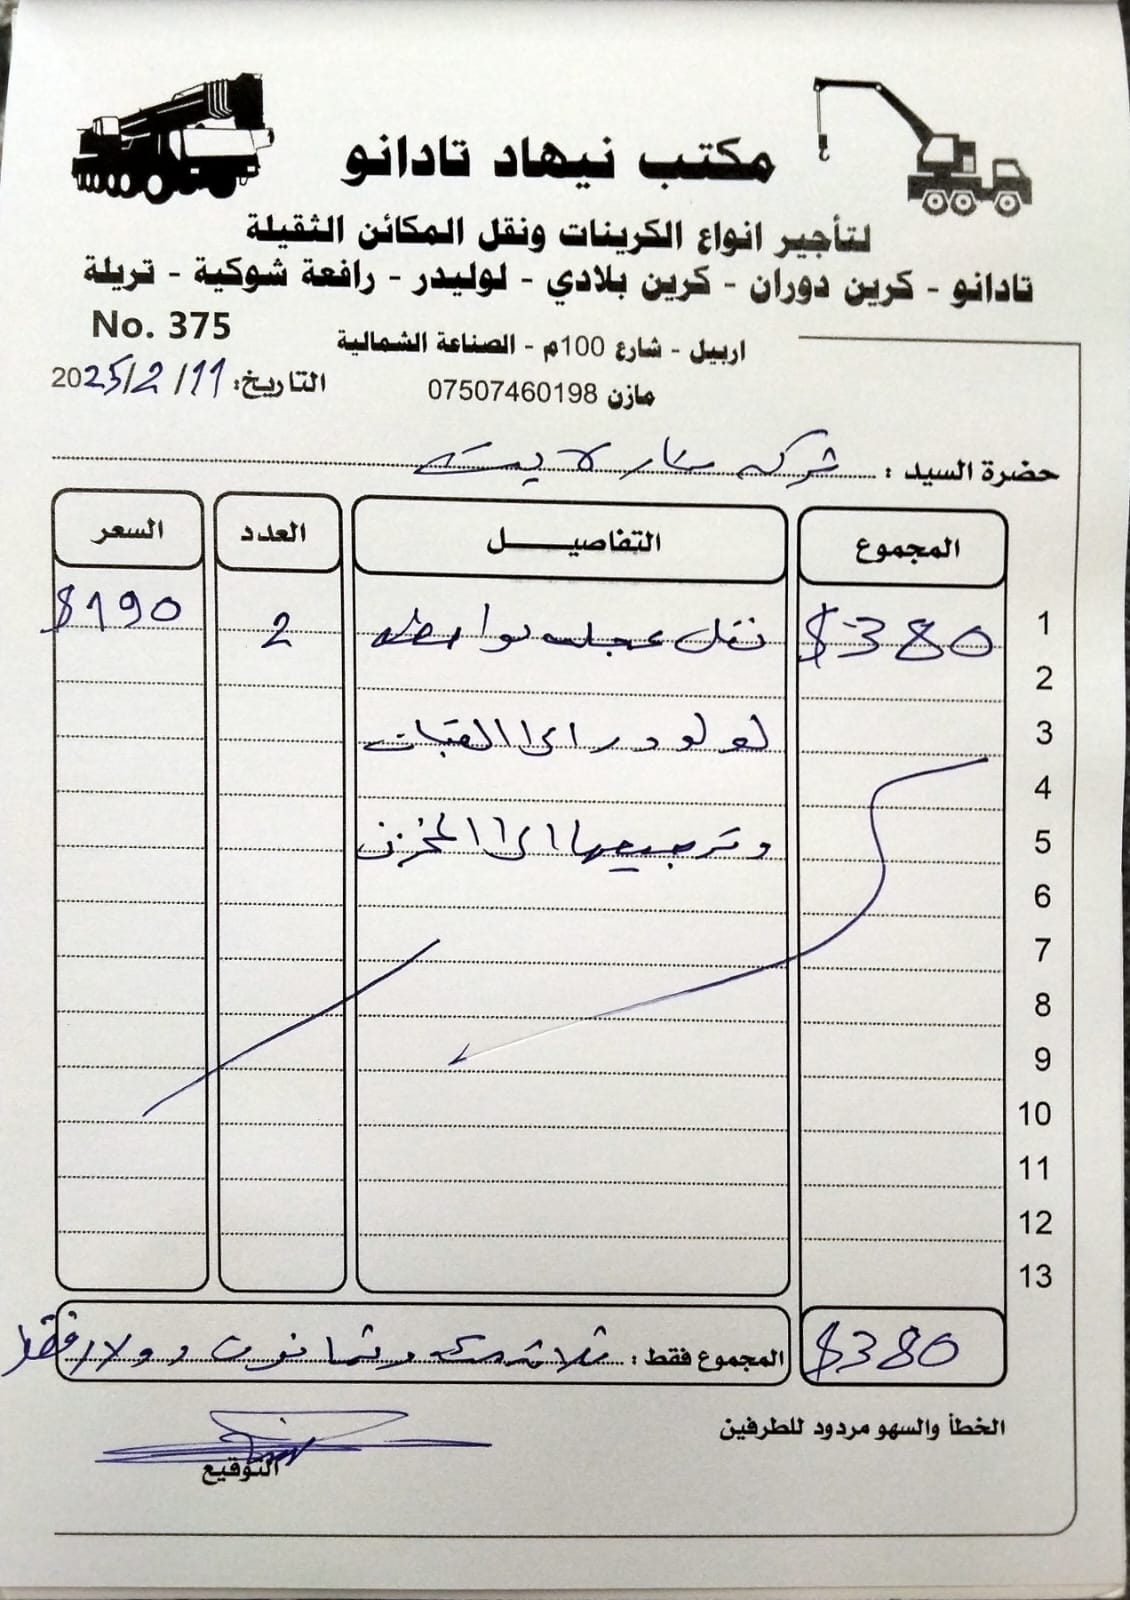 مكتب نيهاد تادانو
لتأجير انواع الكرينات ونقل المكائن الثقيلة
تادانو - كرين دوران - كرين بلادي - لوليدر - رافعة شوكية - تريلة
No. 375
اربيل - شارع 100م - الصناعة الشمالية
التاريخ: 2025/2/11
مازن 07507460198
حضرة السيد : شركة ستار لايت
المجموع التفاصيل العدد السعر
1 $380 نقل عجلة بواسطة 2 $190
2
3 لولودر الى القبات
4
5 وترجيعها الى المخزن
6
7
8
9
10
11
12
13
$380 المجموع فقط : ثلاثمئة وثمانون دولار فقط
الخطأ والسهو مردود للطرفين
التوقيع